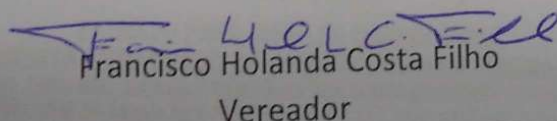 Francisco Holanda Costa Filho
Vereador